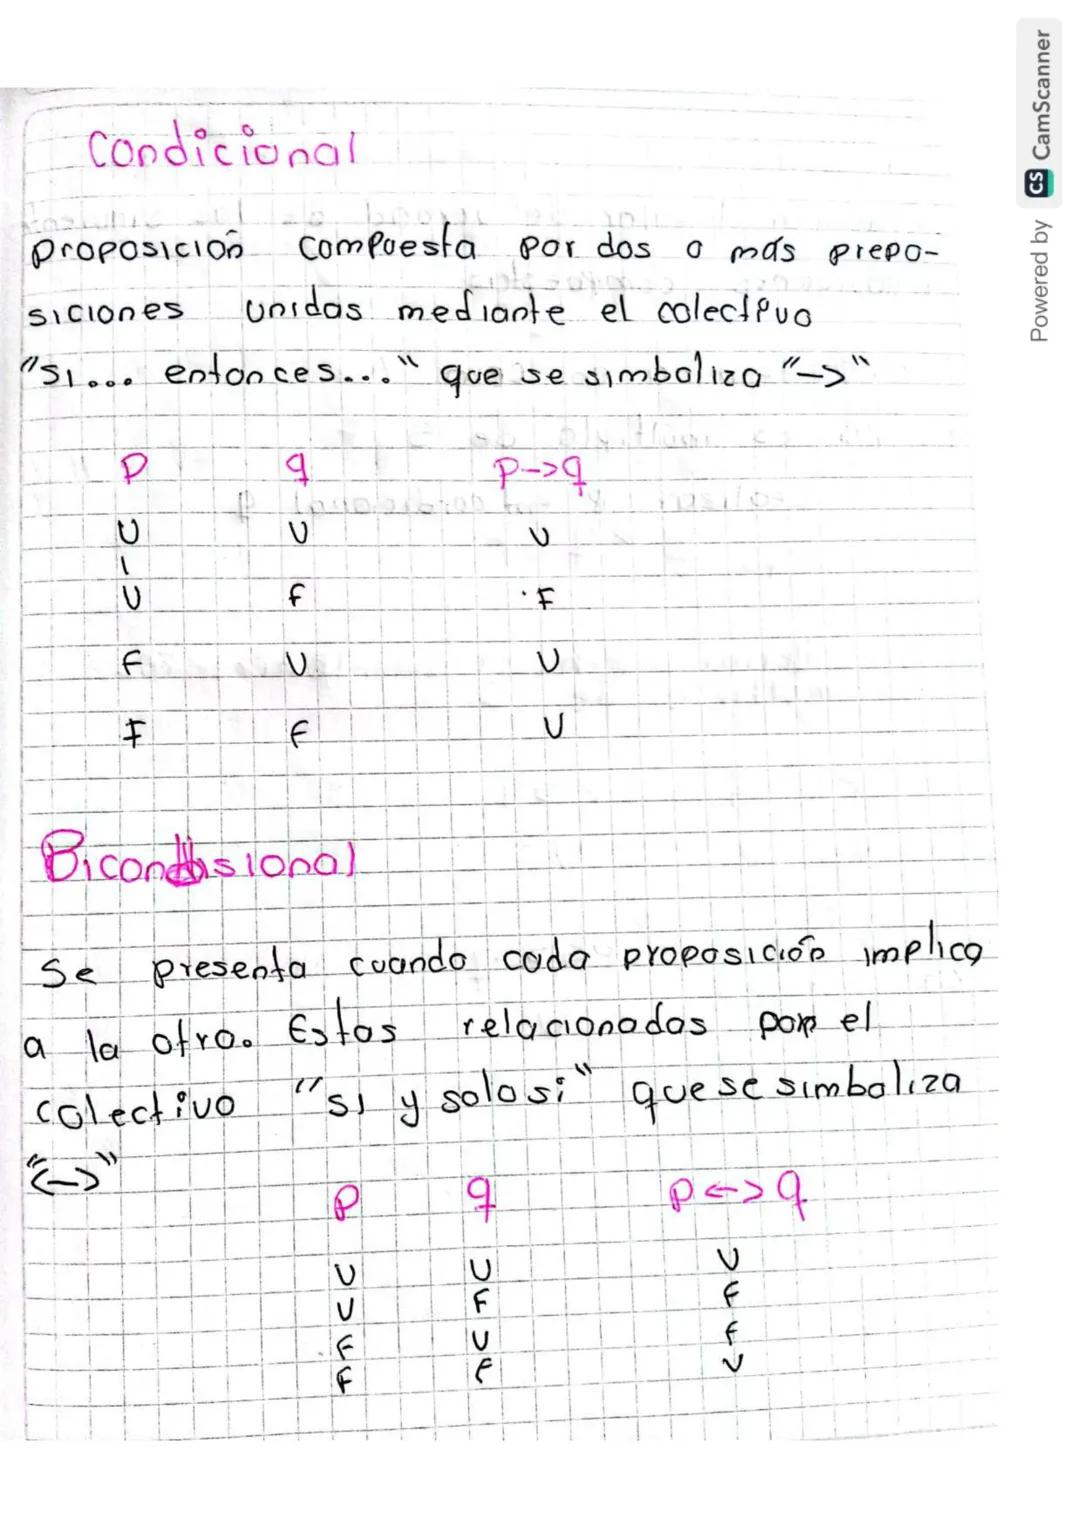 Condicional
proposición compuesta por dos o más prepo-
siciones unidas mediante el colectivo
"si... entonces..." que se simboliza "->"
p q p->q
V V V
V F F
F V V
F F V
Bicondisional
Se presenta cuando cada proposición implica
a la otra. Estas relacionadas por el
colectivo "si y solo si" que se simboliza
"<->"
p q p<->q
V V V
V F F
F V F
F F V
Powered by CS CamScanner